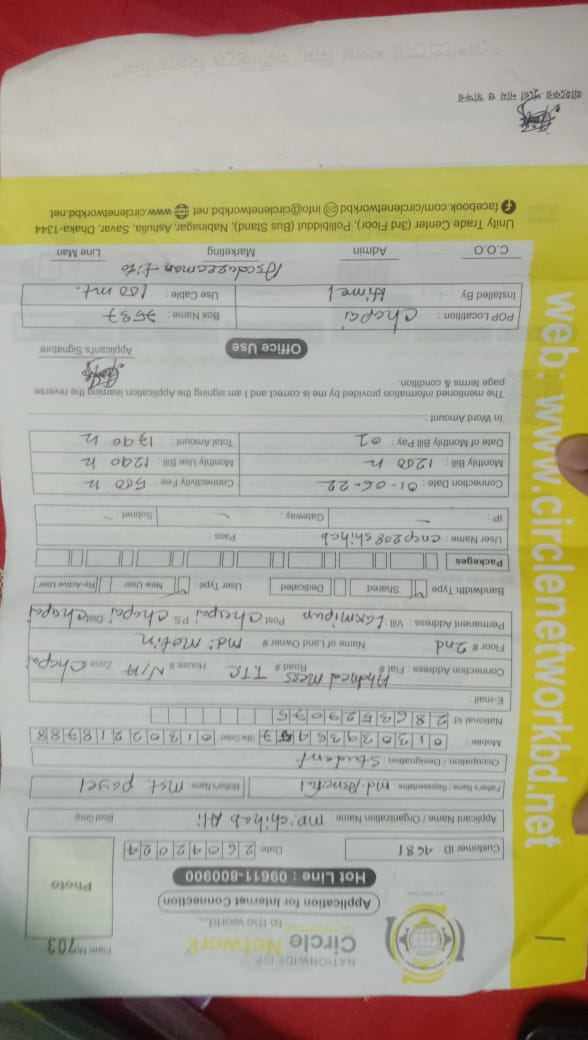 NATIONWIDE ISP
Circle Network
Connecting
to the world...
Form No 703
Application for Internet Connection
Hot Line : 09611-800900
Photo
Customer ID : 4681
Date: 26042024
Applicant Name / Organization Name : MD: Shihab Ali
Blood Group
Father's Name / Representative :
Mother's Name Mst. payel
Occupation / Designation : Student
Mobile :
Other Contact 01302218788
National Id: 2863529075
E-mail :
Connection Address : Flat # Ahamed Mess Road # T.T.C House # N/A Zone Chapai
Floor # 2nd Name of Land Owner # Md: Motin
Permanent Address : Vill Laxmipur Post Chapai PS Chapai Dist Chapai
Bandwith Type Shared Dedicated User Type New User Re-Active User
Packeges
User Name : cncp208shihab Pass :
IP : Gateway : Subnet :
Connection Date : 01-06-22 Connectivity Fee : 500
Monthly Bill : 1200 Monthly Use Bill : 1290
Date of Monthly Bill Pay : 01 Total Amount : 1790
In Word Amount :
The mentioned information provided by me is correct and I am signing the Application learning the reverse
page terms & condition.
Applicant's Signature
Office Use
POP Locatition : Chapai Box Name : 7537
Installed By : Himel Use Cable : 100 mt.
C.O.O Admin Marketing Line Man
Unity Trade Center (3rd Floor), Pollibiddut (Bus Stand), Nabinagar, Ashulia, Savar, Dhaka-1344
facebook.com/circlenetworkbd info@circlenetworkbd.net www.circlenetworkbd.net
web: www.circlenetworkbd.net